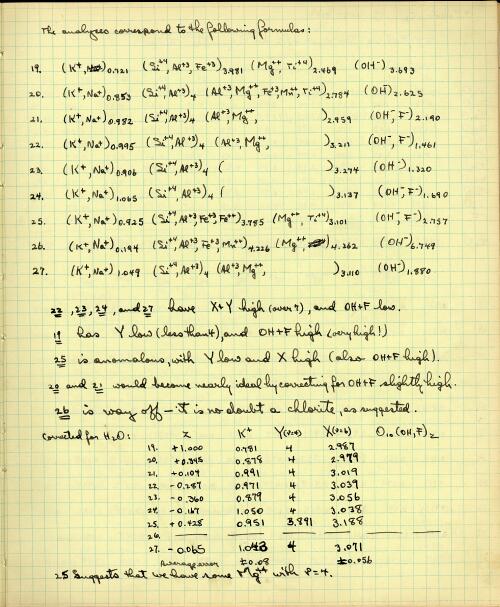 The analyses correspond to the following formulas:
19. (K⁺, )0.721 (Si⁺⁴, Al⁺³, Fe⁺³)3.981 (Mg⁺⁺, Ti⁺⁴)2.469 (OH⁻)3.693
20. (K⁺, Na⁺)0.853 (Si⁺⁴, Al⁺³)4 (Al⁺³, Mg⁺⁺, Fe⁺³, Mn⁺⁺, Ti⁺⁴)2.784 (OH)2.625
21. (K⁺, Na⁺)0.982 (Si⁺⁴, Al⁺³)4 (Al⁺³, Mg⁺⁺, )2.959 (OH⁻, F⁻)2.190
22. (K⁺, Na⁺)0.995 (Si⁺⁴, Al⁺³)4 (Al⁺³, Mg⁺⁺, )3.211 (OH⁻, F⁻)1.461
23. (K⁺, Na⁺)0.906 (Si⁺⁴, Al⁺³)4 ( )3.274 (OH⁻)1.320
24. (K⁺, Na⁺)1.065 (Si⁺⁴, Al⁺³)4 ( )3.137 (OH⁻, F⁻)1.690
25. (K⁺, Na⁺)0.925 (Si⁺⁴, Al⁺³, Fe⁺³, Fe⁺⁺)3.755 (Mg⁺⁺, Ti⁺⁴)3.101 (OH⁻, F⁻)2.757
26. (K⁺, Na⁺)0.194 (Si⁺⁴, Al⁺³, Fe⁺³, Mn⁺⁺)4.226 (Mg⁺⁺, )4.262 (OH⁻)6.749
27. (K⁺, Na⁺)1.049 (Si⁺⁴, Al⁺³)4 (Al⁺³, Mg⁺⁺, )3.110 (OH⁻)1.880
22, 23, 24, and 27 have X+Y high (over 7), and OH+F low.
19 has Y low (less than 4), and OH+F high (very high!)
25 is anomalous, with Y low and X high (also OH+F high).
20 and 21 would become nearly ideal by correcting for OH+F slightly high.
26 is way off – it is no doubt a chlorite, as suggested.
Corrected for H₂O: Z K⁺ Y(P=4) X(P=6) O₁₀(OH,F)₂
19. +1.000 0.781 4 2.987
20. +0.345 0.878 4 2.979
21. +0.104 0.991 4 3.019
22. -0.287 0.971 4 3.039
23. -0.360 0.879 4 3.056
24. -0.167 1.050 4 3.038
25. +0.428 0.951 3.891 3.188
26.
27. -0.065 1.043 4 3.071
Average error ±0.08 ±0.056
25 Suggests that we have some Mg⁺⁺ with P=4.